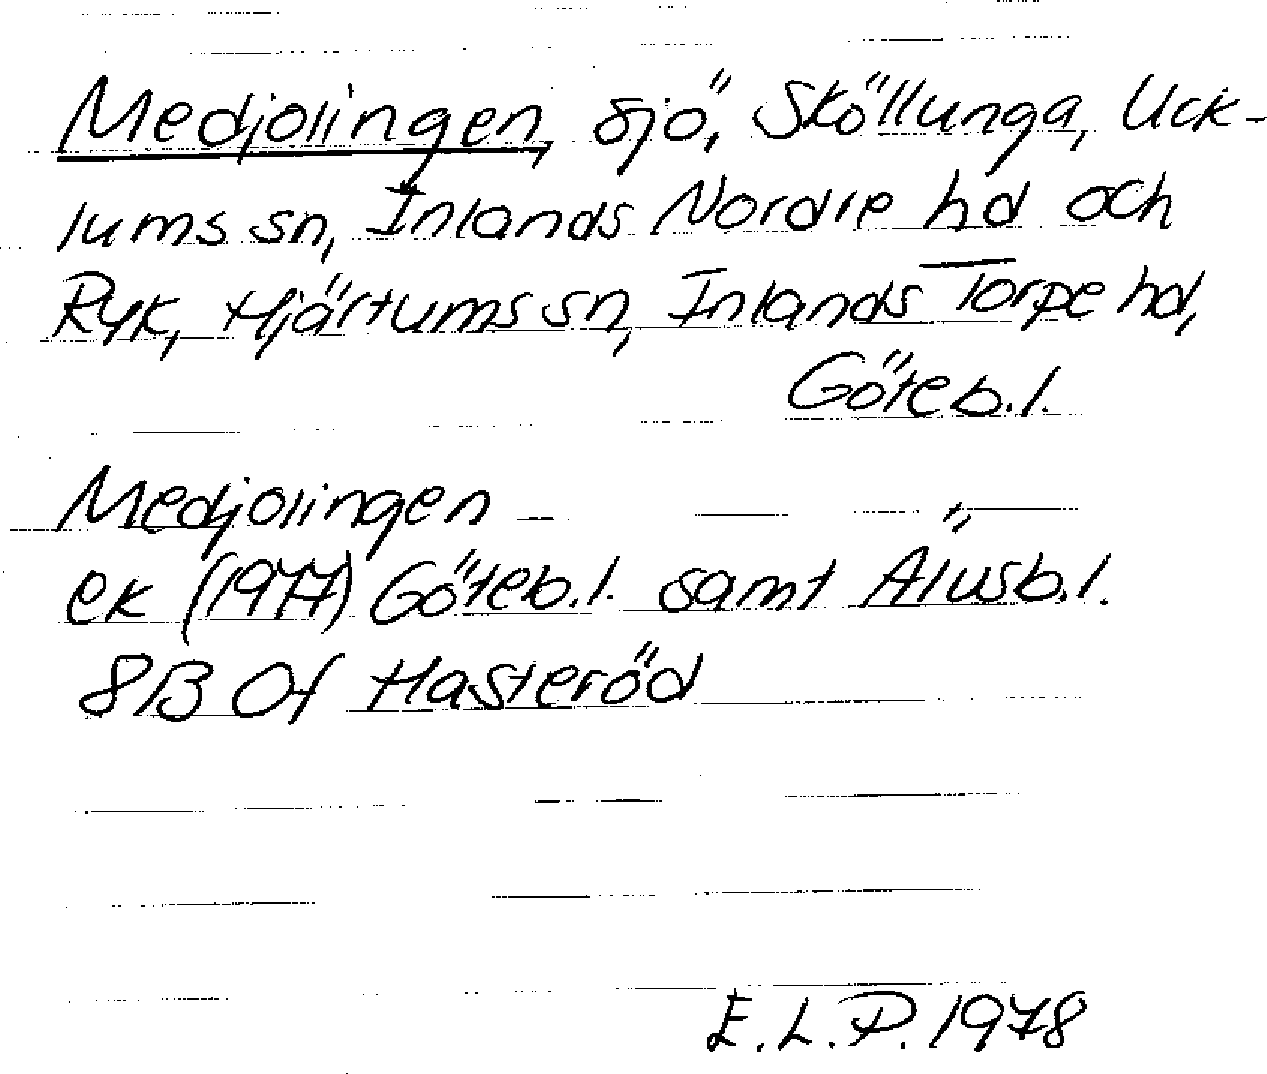 Medjolingen, sjö, Sköllunga, Uck-
lums sn, Inlands Nordre hd och
Ryk, Hjärtums sn, Inlands Torpe hd,
Göteb.l.
Medjolingen
ek (1977) Göteb.l. samt Älvsb.l.
8B 0f Hasteröd
E.L.P. 1978